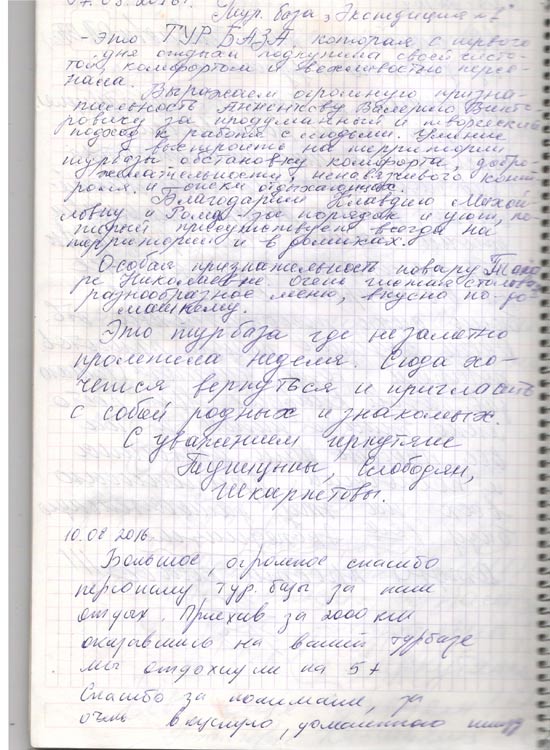 Тур. база "Экспедиция №1"
- Это ТУР БАЗА которая с первого
дня отдыха подкупила своей чисто-
той комфортом и вежливостью персо-
нала.
Выражаем огромную призна-
тельность Анненкову Валерию Викто-
ровичу за продуманный и творческий
подход к работе с людьми. Умение
выстроить на территории
турбазы обстановку комфорта, добро-
желательности, ненавязчивого конт-
роля и опеки отдыхающих.
Благодарим Клавдию Михай-
ловну и Рому за порядок и уют, ко-
торый присутствует всегда на
территории и в домиках.
Особая признательность повару Тама-
ре Николаевне. Очень
разнообразное меню, вкусно по-до-
машнему.
Это турбаза где незаметно
пролетела неделя. Сюда хо-
чется вернуться и пригласить
с собой родных и знакомых.
С уважением иркутяне
Слободян,
Шкарпетовы.
10.08 2016.
Большое, огромное спасибо
персоналу тур. базы за наш
отдых. Приехав за 2000 км
оказавшись на вашей турбазе
мы отдохнули на 5+
Спасибо за понимание, за
очень вкусную,